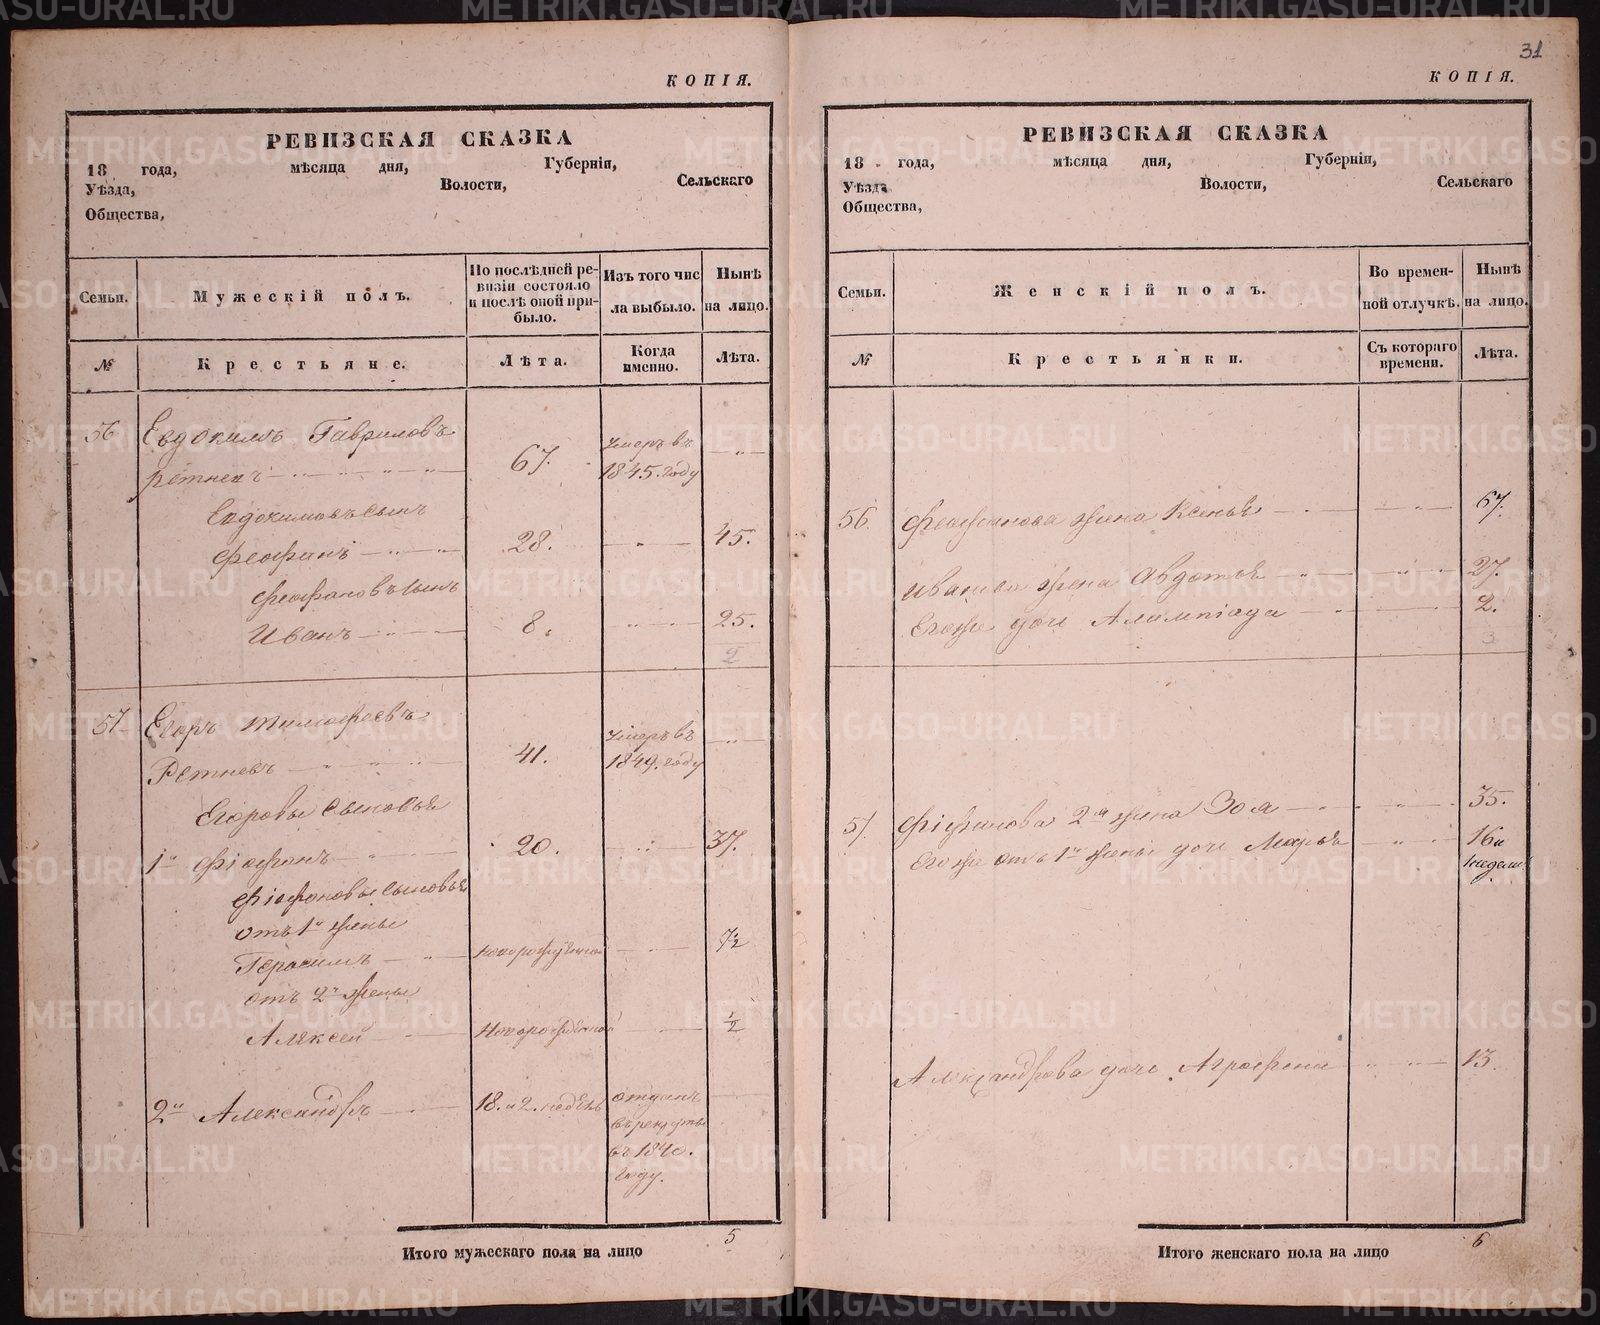 КОПІЯ.
РЕВИЗСКАЯ СКАЗКА
18 года, мѣсяца дня, Губерніи,
Уѣзда, Волости, Сельскаго
Общества,
Семьи. Мужескій полъ. По послѣдней ревизіи состояло и послѣ оной прибыло. Изъ того числа выбыло. Нынѣ на лицо.
№ Крестьяне. Лѣта. Когда именно. Лѣта.
56 Евдокимъ Гавриловъ
Ретневъ 67. умеръ въ 1845. году
Евдокимовъ сынъ
Феофанъ 28. 45.
Феофановъ сынъ
Иванъ 8. 25.
2
57 Егоръ Тимофеевъ
Ретневъ 41. умеръ въ 1849. году
Егоровы сыновья
1й Фіофонъ 20. 37.
Фіофоновы сыновья
отъ 1й жены
Герасимъ новорожденной 7½
отъ 2й жены
Алексей новорожденной ½
2й Александръ 18. и 2. недели отданъ
въ рекруты
въ 1840.
году.
Итого мужескаго пола на лицо 5
31
КОПІЯ.
РЕВИЗСКАЯ СКАЗКА
18 года, мѣсяца дня, Губерніи,
Уѣзда Волости, Сельскаго
Общества,
Семьи. Женскій полъ. Во временной отлучкѣ. Нынѣ на лицо.
№ Крестьянки. Съ котораго времени. Лѣта.
56. Феофанова жена Ксенья 67.
Иванова жена Авдотья 27.
Егоже дочь Алимпіада 2.
3
57. Фіофанова 2я жена Зоя 35.
Егоже отъ 1й жены дочь Марья 16 и
1 недели
Александрова дочь Аграфена 13.
Итого женскаго пола на лицо 6
METRIKI.GASO-URAL.RU